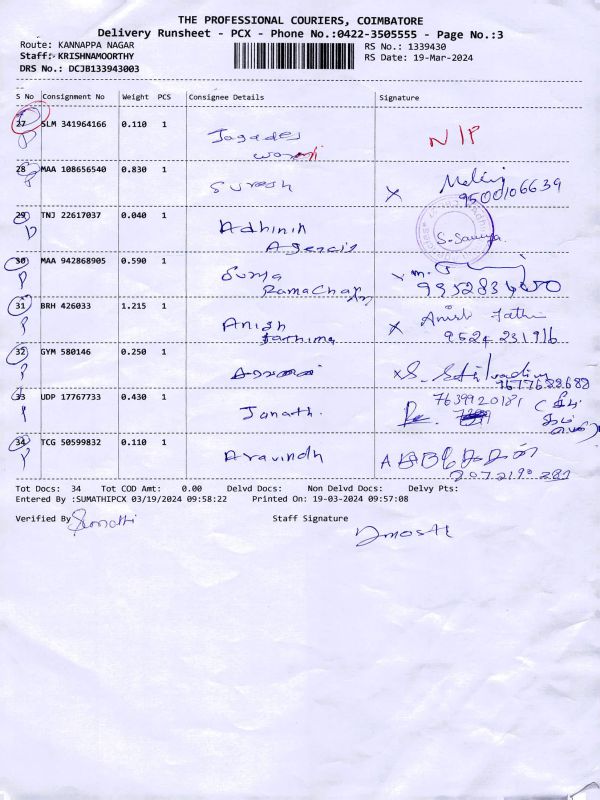 THE PROFESSIONAL COURIERS, COIMBATORE
Delivery Runsheet - PCX - Phone No.:0422-3505555 - Page No.:3
Route: KANNAPPA NAGAR RS No.: 1339430
Staff: KRISHNAMOORTHY RS Date: 19-Mar-2024
DRS No.: DCJB133943003
S No Consignment No Weight PCS Consignee Details Signature
27 SLM 341964166 0.110 1 N/P
28 MAA 108656540 0.830 1 Suresh X 9500106639
29 TNJ 22617037 0.040 1 Adhinin
Agencis
30 MAA 942868905 0.590 1 Surya
RamaChan
31 BRH 426033 1.215 1 Anish X
Fathima 9524231916
32 GYM 580146 0.250 1 X 9677622682
33 UDP 17767733 0.430 1 Janath. 7639920181
34 TCG 50599832 0.110 1 Aravindh
Tot Docs: 34 Tot COD Amt: 0.00 Delvd Docs: Non Delvd Docs: Delvy Pts:
Entered By :SUMATHIPCX 03/19/2024 09:58:22 Printed On: 19-03-2024 09:57:08
Verified By Sumathi Staff Signature